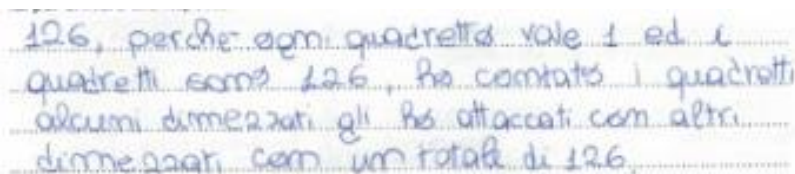 126, perche ogni quadretto vale 1 ed i
quadretti sono 126, ho contato i quadretti
alcuni dimezzati gli ho attaccati con altri
dimezzati con un totale di 126.